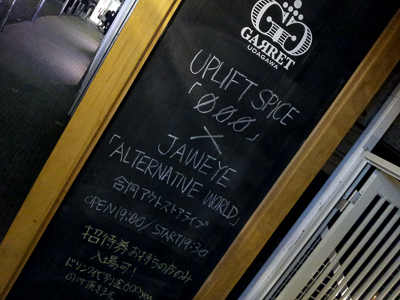 GARRET
UDAGAWA
UPLIFT SPICE
「0.0.0」
×
JAWEYE
「ALTERNATIVE WORLD」
合同アウトストアライブ
OPEN19:00/START19:30
招待券お持ちの方のみ
入場可!
ドリンク代別途600円